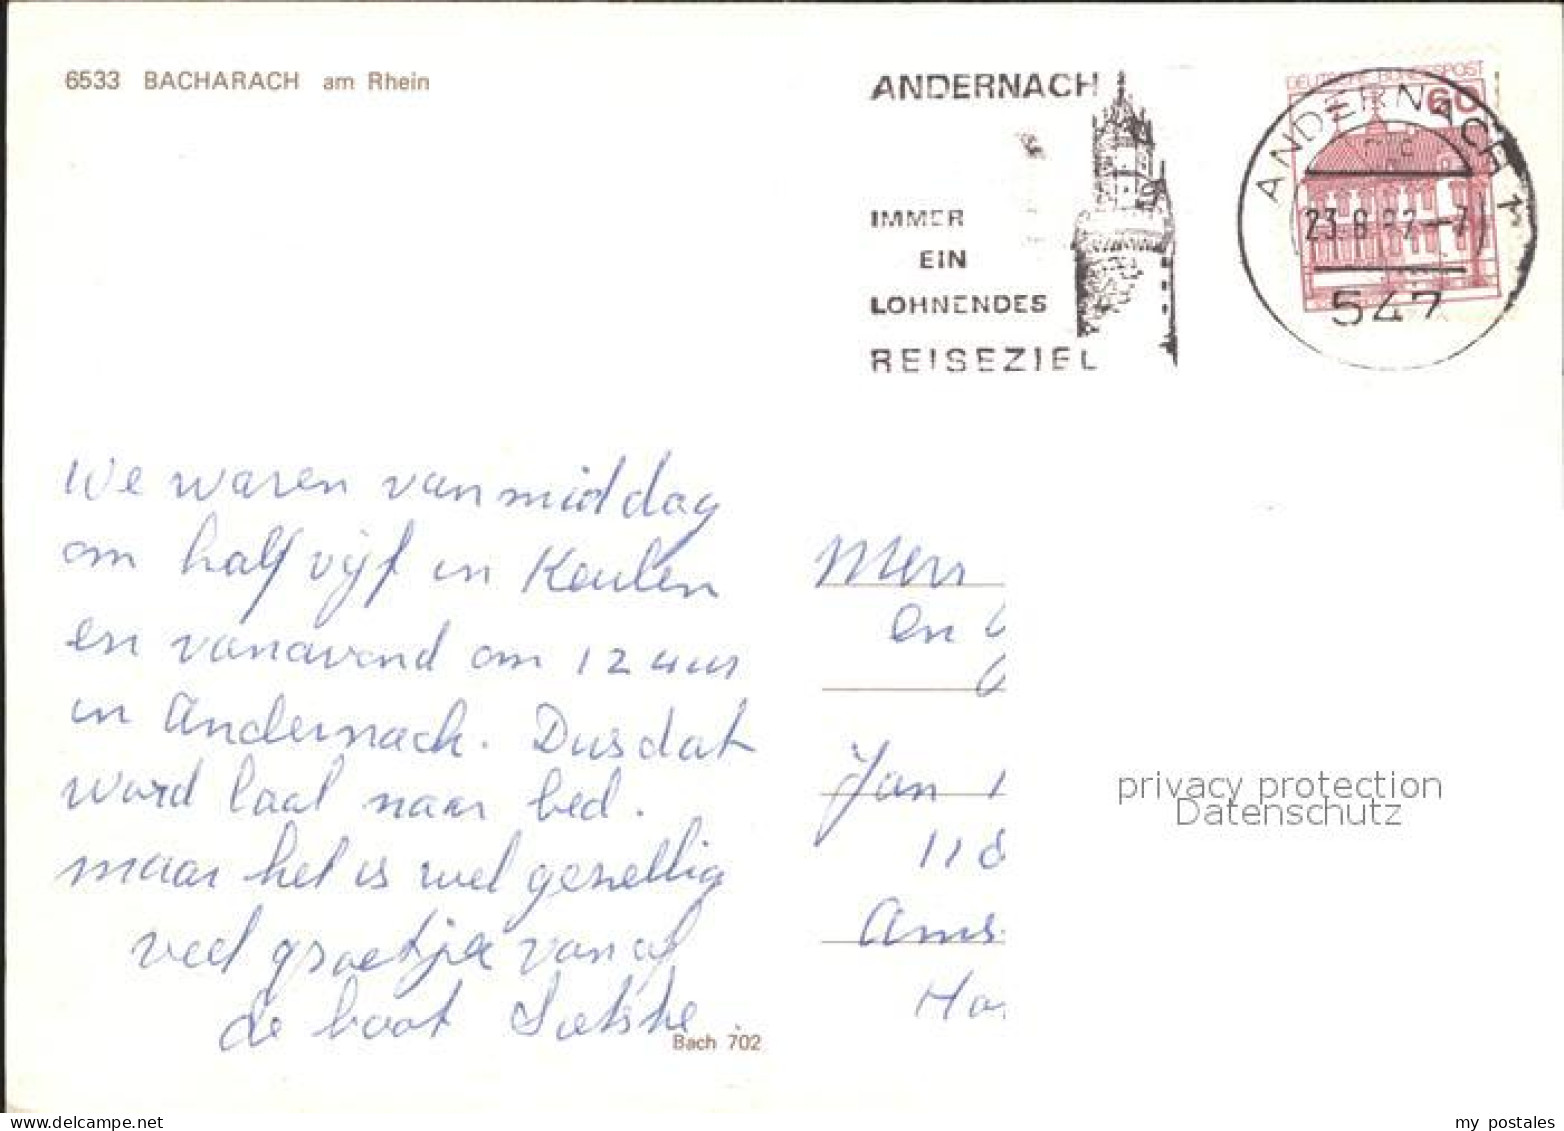 6533 BACHARACH am Rhein
ANDERNACH
IMMER
EIN
LOHNENDES
REISEZIEL
DEUTSCHE BUNDESPOST
60
ANDERNACH 1
547
We waren van middag
om half vijf in Keulen
en vanavond om 12 uur
in Andernach. Dus dat
word laat naar bed.
maar het is wel gezellig
veel groetjes vanaf
de boot
Bach 702
en
Jan
118
Ams
privacy protection
Datenschutz
www.delcampe.net
my_postales